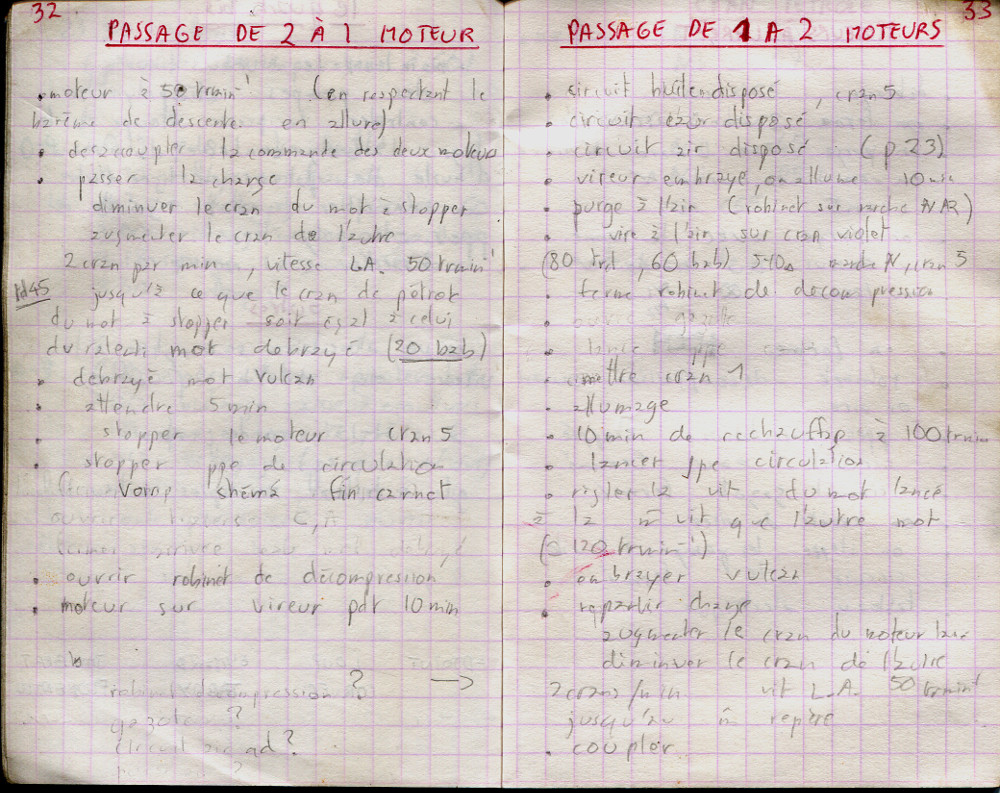 32
PASSAGE DE 2 À 1 MOTEUR
. moteur à 50 trmin⁻¹ (en respectant le
barème de descente en allure)
. desaccoupler la commande des deux moteurs
. passer la charge
diminuer le cran du mot à stopper
augmenter le cran de l'autre
2 cran par min, vitesse L.A. 50 trmin⁻¹
jusqu'à ce que le cran de pétrot
du mot à stopper soit égal à celui
du ralenti mot debrayé (20 bab)
. debrayé mot vulcan
. attendre 5 min
. stopper le moteur cran 5
. stopper ppe de circulation
shéma fin carnet
ouvrir
. ouvrir robinet de décompression
. moteur sur vireur pdt 10 min
robinet decompression ? →
gazole ?
circuit air ad ?
33
PASSAGE DE 1 A 2 MOTEURS
. circuit huile disposé, cran 5
. circuit eau disposé
. circuit air disposé (p 23)
. vireur embrayé, on allume 10 min
. purge à l'air (robinet sur marche AR)
. vire à l'air sur cran violet
(80, 60 bab) cran 5
. ferme robinet de decompression
. ouvre gazole
. lance ppe
. mettre cran 1
. allumage
. 10 min de rechauffage à 100 trmin
. lancer ppe circulation
. regler la vit du mot lancé
à la m̂ vit que l'autre mot
(120 trmin⁻¹)
. embrayer vulcan
. repartir charge
augmenter le cran du moteur
diminuer le cran de l'autre
2 crans/min vit L.A. 50 trmin⁻¹
jusqu'au m̂ repère
. coupler